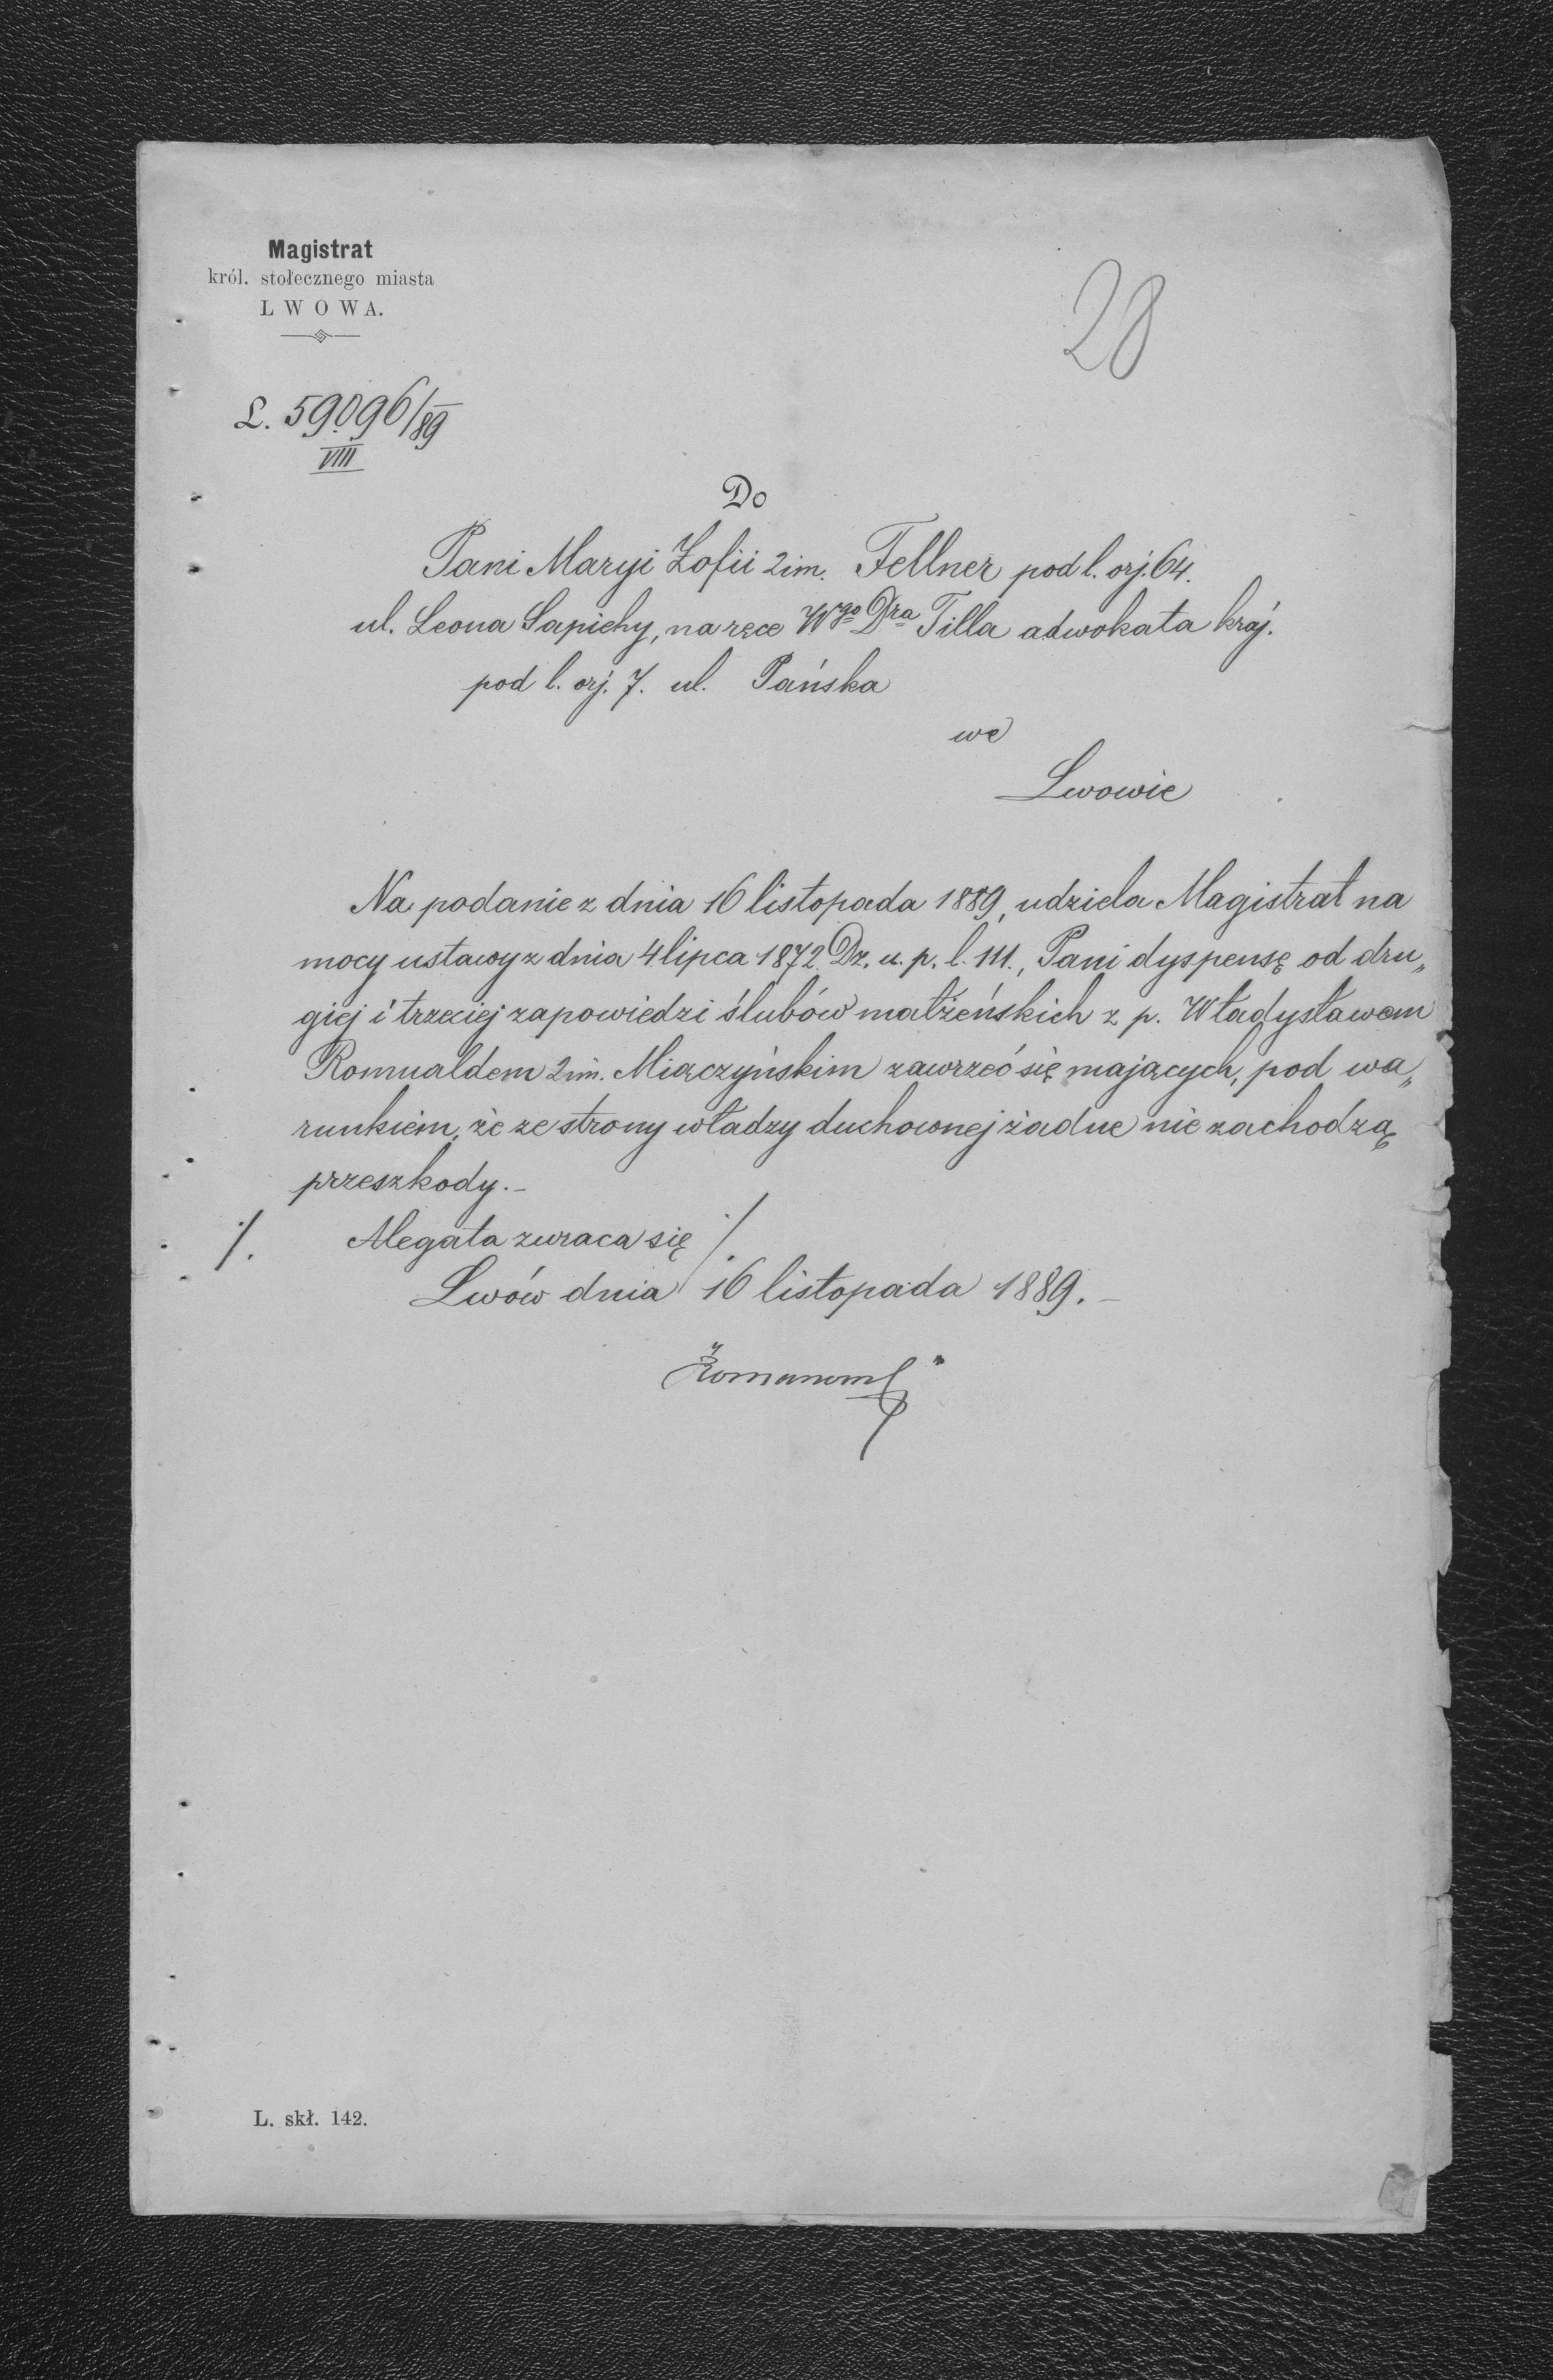 Magistrat
król. stołecznego miasta
LWOWA.
28
L. 59096/89
VIII
Do
Pani Maryi Zofii 2im. Fellner pod l. orj. 64.
ul. Leona Sapiehy, na ręce Wgo Dra Tilla adwokata kraj.
pod l. orj. 7. ul. Pańska
we
Lwowie
Na podanie z dnia 16 listopada 1889, udziela Magistrat na
mocy ustawy z dnia 4 lipca 1872 Dz. u. p. l. 111., Pani dyspensę od dru„
giej i trzeciej zapowiedzi ślubów małżeńskich z p. Władysławem
Romualdem 2im. Miączyńskim zawrzeć się mających, pod wa„
runkiem, że ze strony władzy duchownej żadne nie zachodzą
przeszkody.-
·/. Alegata zwraca się ·/.
Lwów dnia 16 listopada 1889.-
L. skł. 142.